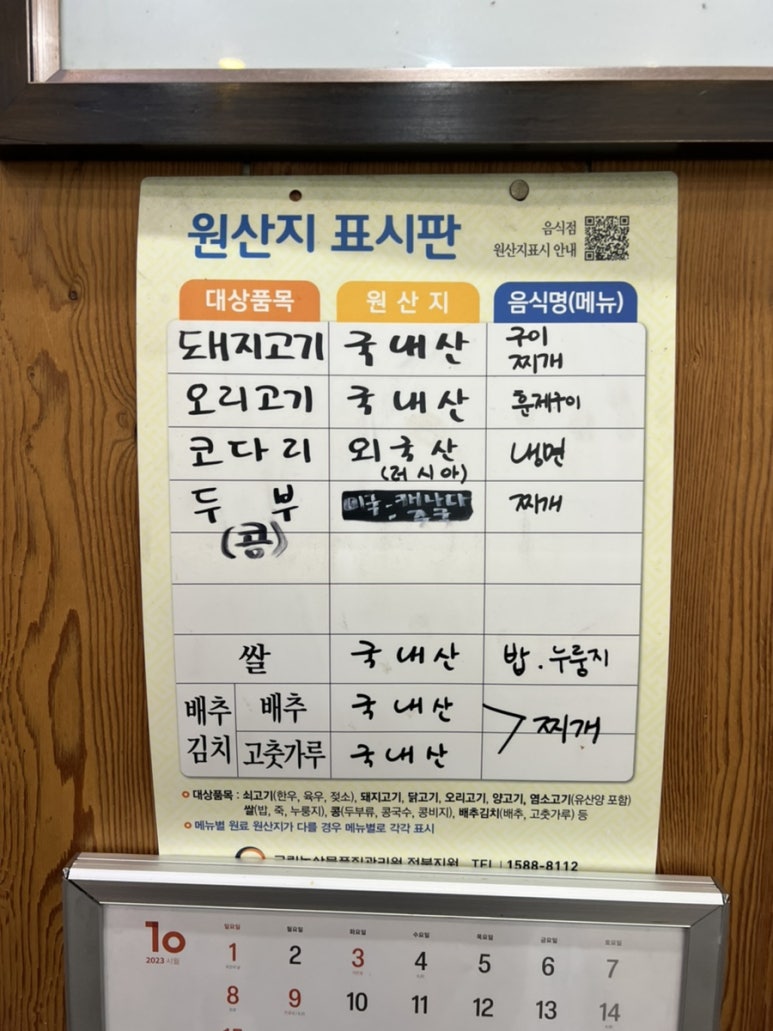 원산지 표시판
음식점
원산지표시 안내
대상품목 원산지 음식명(메뉴)
돼지고기 국내산 구이
찌개
오리고기 국내산 훈제구이
코다리 외국산 냉면
(러시아)
두부 미국. 캐나다 찌개
중국
(콩)
쌀 국내산 밥. 누룽지
배추 배추 국내산
김치 고춧가루 국내산
찌개
대상품목 : 쇠고기(한우, 육우, 젖소), 돼지고기, 닭고기, 오리고기, 양고기, 염소고기(유산양 포함)
쌀(밥, 죽, 누룽지), 콩(두부류, 콩국수, 콩비지), 배추김치(배추, 고춧가루) 등
메뉴별 원료 원산지가 다를 경우 메뉴별로 각각 표시
국립농산물품질관리원 전북지원 TEL 1588-8112
10
2023 시월
일요일 월요일 화요일 수요일 목요일 금요일 토요일
1 2 3 4 5 6 7
8 9 10 11 12 13 14